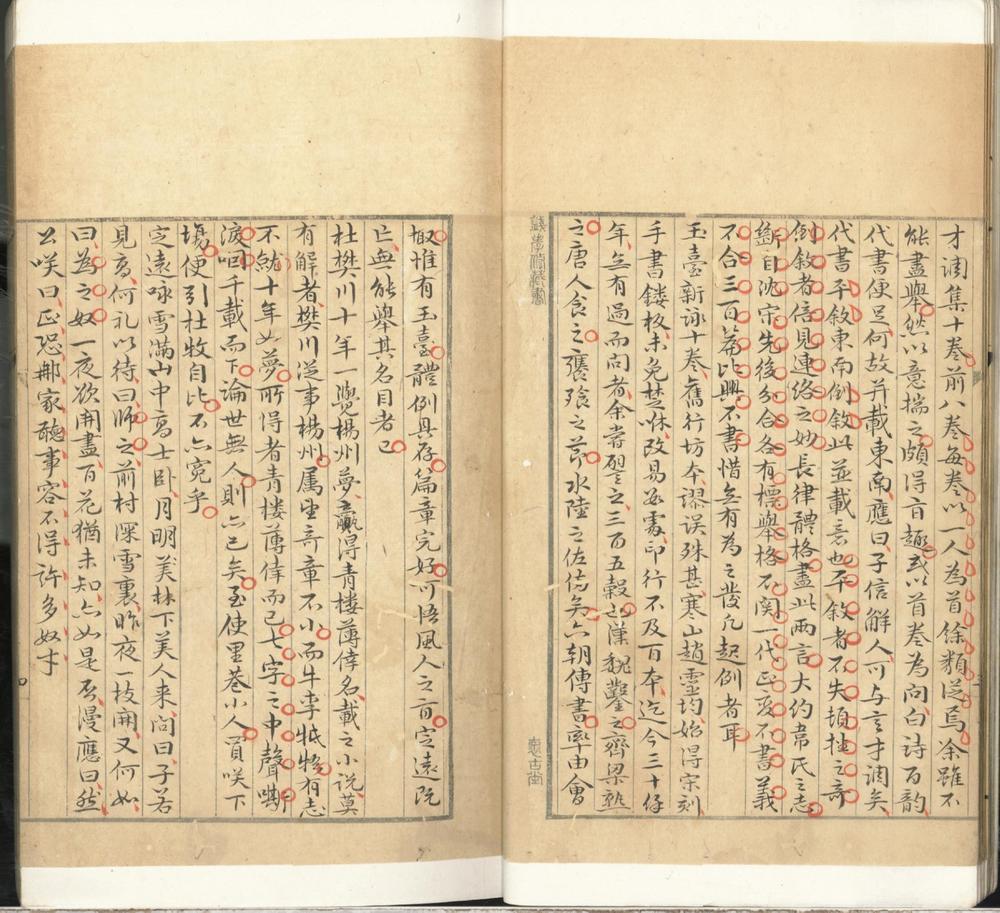 才调集十卷前八卷每卷以一人為首餘類從焉余雖不
能盡舉然以意揣之頗得百趣或以首卷為問白诗百韵
代書便是何故并載東南應曰子信解人可与言才调矣
代書平敘東南倒敘此並載意也平敘者不失頓挫之奇
倒敘者倍見連络之妙長律體格盡此兩言大约韦氏之志
斷自沈宋先後分合各有標舉権不関一代正变不書義
不合三百篇比興不書惜無有為之發凡起例者耳
玉臺新詠十卷舊行坊本謬误殊甚寒山趙靈均始得宗刻
手書鏤板未免楚咻改易数處印行不及百本迄今三十仔
年無有過而问者余嘗譬之三百五穀也漢魏鑿之齊梁熟
之唐人食之饔飱之節水陸之佐俻矣六朝傳書率由會
取惟有玉臺體例具存篇章完好可悟風人之旨定遠既
亡無能舉其名目者已
杜樊川十年一覺楊州夢赢得青楼薄倖名載之小说莫
有解者樊川從事楊州属望奇章不小而牛李牴牾有志
不就十年如夢所得者青楼薄倖而已七字之中聲嘶
淚咽千載而下論世無人則亦已矣至使里巷小人買咲下
場便引杜牧自比不亦寃乎
定遠咏雪滿山中高士卧月明美林下美人来问曰子若
見高何礼以待曰師之前村深雪裏昨夜一枝開又何如
曰為之奴一夜欲開盡百花猶未知亦如是否漫應曰然
公咲曰正恐那家聴事容不得許多奴才